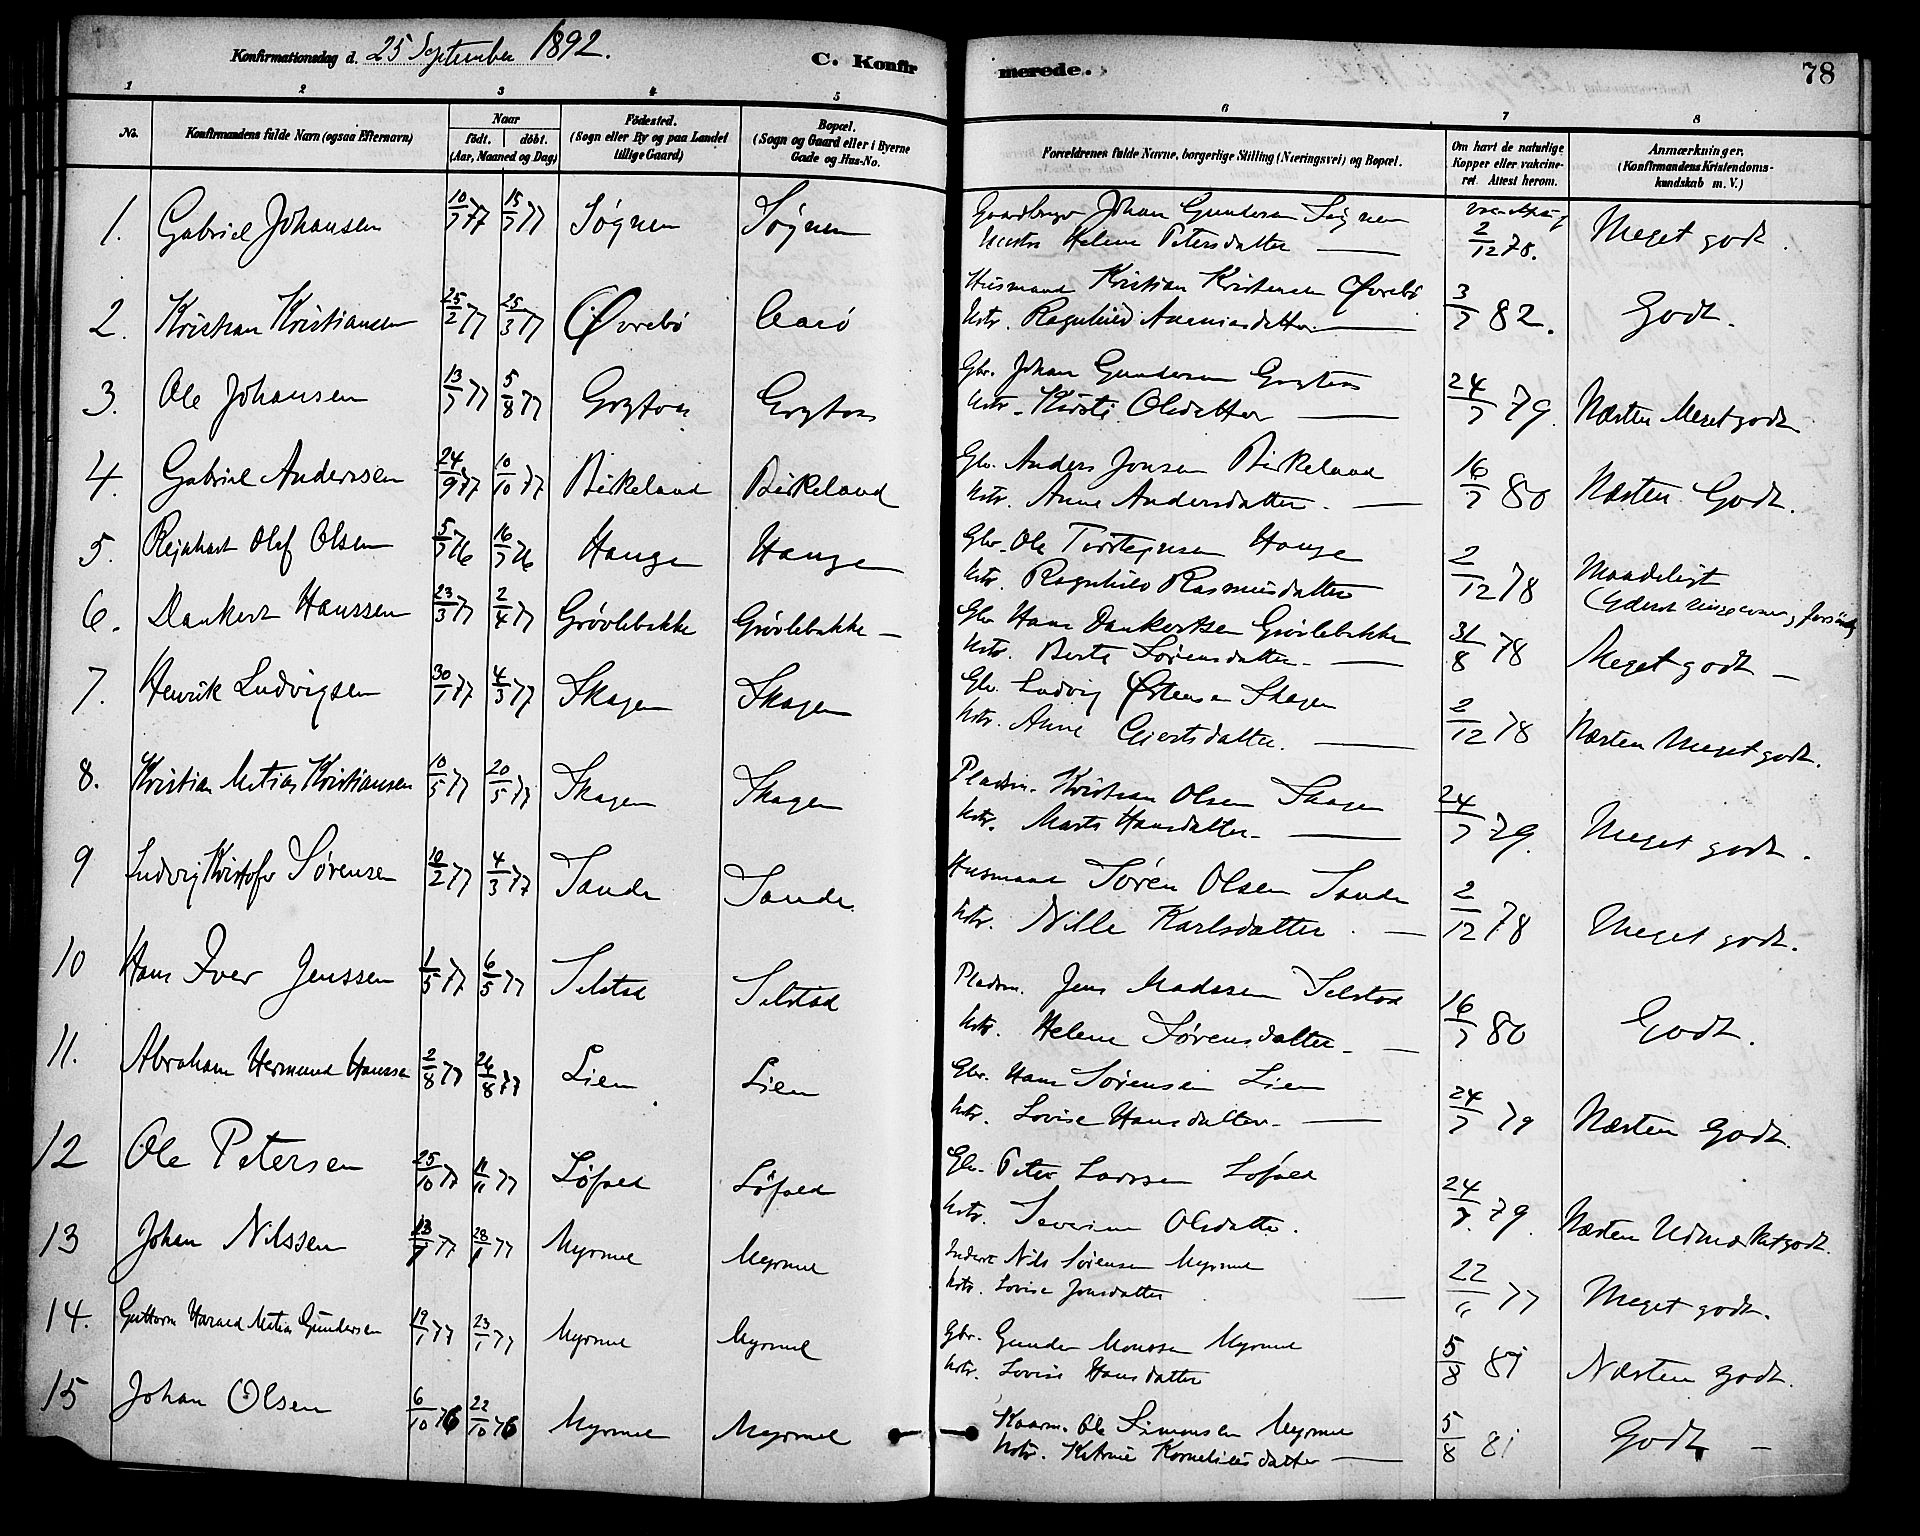 Konfirmationsdag d. 25 September 1892.
C. Konfirmerede.
78
1 2 3 4 5 6 7 8
No.
Konfirmandens fulde Navn (ogsaa Efternavn)
Naar
født. døbt.
(Aar, Maaned og Dag)
Fødested.
(Sogn eller By og paa Landet
tillige Gaard)
Bopæl.
(Sogn og Gaard eller i Byerne
Gade og Hus-No.
Forældrenes fulde Navne, borgerlige Stilling (Næringsvei) og Bopæl.
Om havt de naturlige
Kopper eller vakcine-
ret. Attest herom.
Anmærkninger.
(Konfirmandens Kristendoms-
kundskab m. V.)
1. Gabriel Johansen 10/7 77 15/7 77 Søgnen Søgnen Johan Gundersen Søgnen 2/12 78. Meget godt.
Helene Petersdatter —
2. Kristian Kristiansen 25/2 77 25/3 77 Øvrebø Husmand Kristian Kristensen Øvrebø 3/7 82. Godt.
Hstr. Ragnhild —
3. Ole Johansen 13/7 77 5/8 77 Gbr. Johan Gundersen 24/7 79. Næsten Meget godt
Hstr. Kirsti Olsdatter —
4. Gabriel Anderssen 24/9 77 10/10 77 Birkeland Birkeland Gbr. Anders Jonsen Birkeland 16/7 80 Næsten Godt.
Hstr. Anne Andersdatter. —
5. Reinhart Olaf Olsen 5/7 76 16/7 76 Hauge Hauge Gbr. Ole Hauge 2/12 78 Maadeligt
Hstr. Ragnhild Rasmusdatter
6. Dankert Hanssen 23/3 77 2/4 77 Grøvlebakke Grøvlebakke — Gbr. Hans Dankertsen Grøvlebakke 31/8 78 Meget godt —
Hstr. Berte Sørensdatter. —
7. Henrik Ludvigsen 30/1 77 4/3 77 Skagen Skagen Gbr. Ludvig Østensen Skagen 2/12 78 Næsten Meget godt.
Hstr. Anne —
8. Kristian Matias Kristiansen 10/5 77 20/5 77 Skagen Skagen Pladsm. Kristian Olsen Skagen 24/7 79. Meget godt.
Hstr. Marte Hansdatter —
9 Ludvig Kristofer Sørensen 10/2 77 4/3 77 Sande Sande. Husmand Søren Olsen Sande 2/12 78 Meget godt.
Hstr. Nille Karlsdatter. —
10 Hans Iver Jenssen 1/5 77 6/5 77 Selstad Selstad Pladsm. Jens Madssen Selstad 16/7 80 Godt.
Hstr. Helene Sørensdatter —
11. Abraham Hermund Hanssen 2/8 77 26/8 77 Lien Lien Gbr. Hans Sørensen Lien 24/7 79 Næsten Godt.
Hstr. Lovise Hansdatter. —
12 Ole Petersen 25/10 77 11/11 77 Løfald Løfald Gbr. Peter Larssen Løfald 24/7. 79. Næsten Udmærket godt.
Hstr. Severine Olsdatter.
13 Johan Nilssen 28/1 77 Myrmel Myrmel Inderst Nils Sørensen Myrmel 77 Meget godt.
Hstr. Lovise Jonsdatter —
14. Guttorm Harald Matias Gundersen 19/1 77 23/1 77 Myrmel Myrmel Gbr. Gunder Monssen Myrmel 5/8 81 Næsten godt.
Hstr. Lovise Hansdatter
15 Johan Olsen 6/10 76 22/10 76 Myrmel Myrmel Kaarm. Ole Simonsen Myrmel 5/8 81 Godt —
Hstr. Katrine Korneliusdatter —